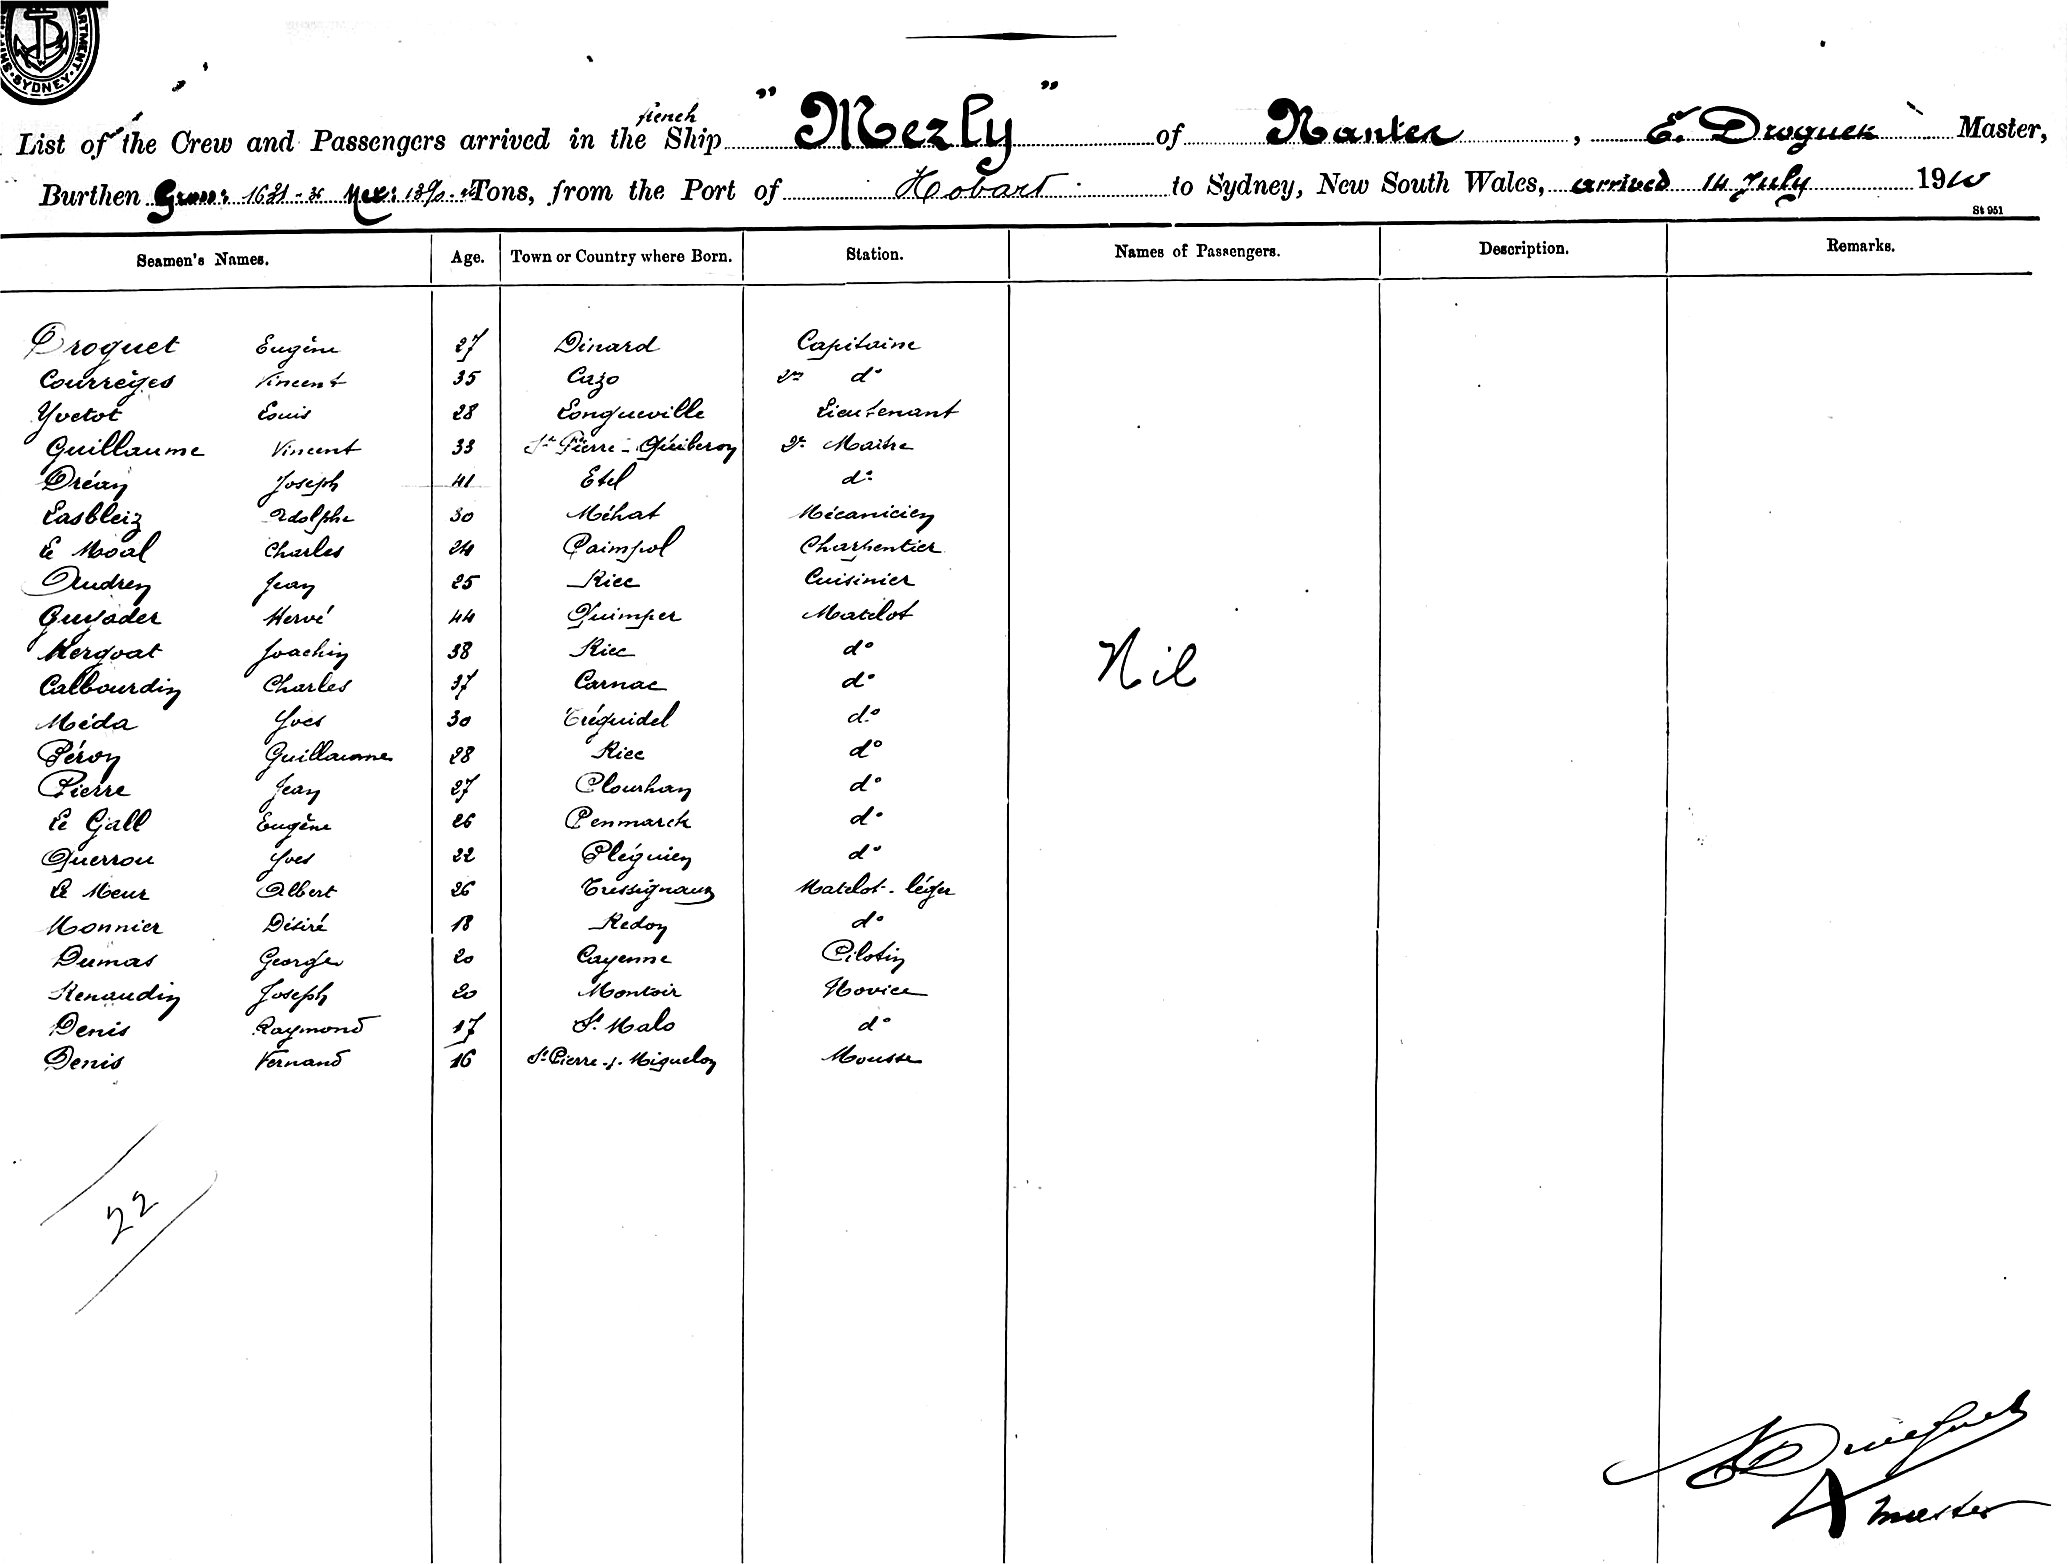 SYDNEY
french
List of the Crew and Passengers arrived in the Ship "Mezly" of Nantes, E. Droguet Master,
Burthen Gross: 1631 - Net: Tons, from the Port of Hobart to Sydney, New South Wales, arrived 14 July 1910
St 951
Seamen's Names. Age. Town or Country where Born. Station. Names of Passengers. Description. Remarks.
Droguet Eugène 27 Dinard Capitaine
Courrèges Vincent 35 Cazo 2m do
Yvetot Louis 28 Longueville Lieutenant
Guillaume Vincent 33 St Pierre - Quiberon 2e Maître
Dréan Joseph 41 Etel do
Lasbleiz Adolphe 30 Méhat Mécanicien
Le Moal Charles 24 Paimpol Charpentier
Audren Jean 25 Riec Cuisinier
Guyader Hervé 44 Quimper Matelot
Kergoat Joachin 38 Riec do
Nil
Calbourdin Charles 37 Carnac do
Méda Yves 30 Tréguidel do
Péron Guillaume 28 Riec do
Pierre Jean 27 Plourhan do
Le Gall Eugène 26 Penmarck do
Querrou Yves 22 Pléguien do
Le Meur Albert 26 Tressignaux Matelot-léger
Monnier Désiré 18 Redon do
Dumas George 20 Cayenne Pilotin
Renaudin Joseph 20 Montoir Novice
Denis Raymond 17 St Malo do
Denis Fernand 16 St Pierre - Miquelon Mousse
22
Droguet
Master